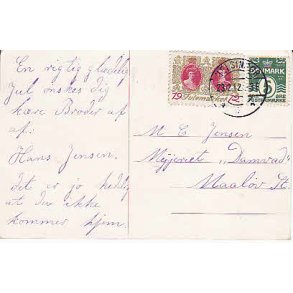 En rigtig glædelig
Jul ønskes dig
kære Broder af
af:
Hans Jensen.
det er jo kedlig
at du ikke
kommer hjem.
1912
Julemærket
DANMARK
5
M. C. Jensen
Mejeriet "Damvad"
Maaløv St.